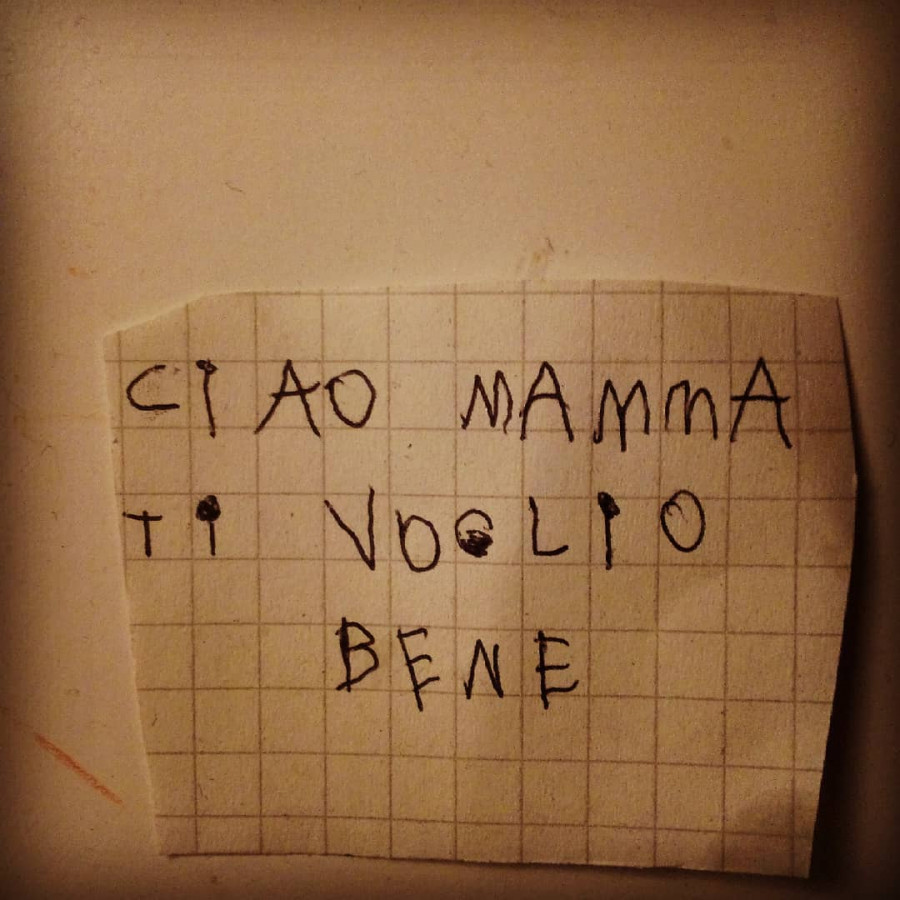 CIAO MAMMA
TI VOGLIO
BENE